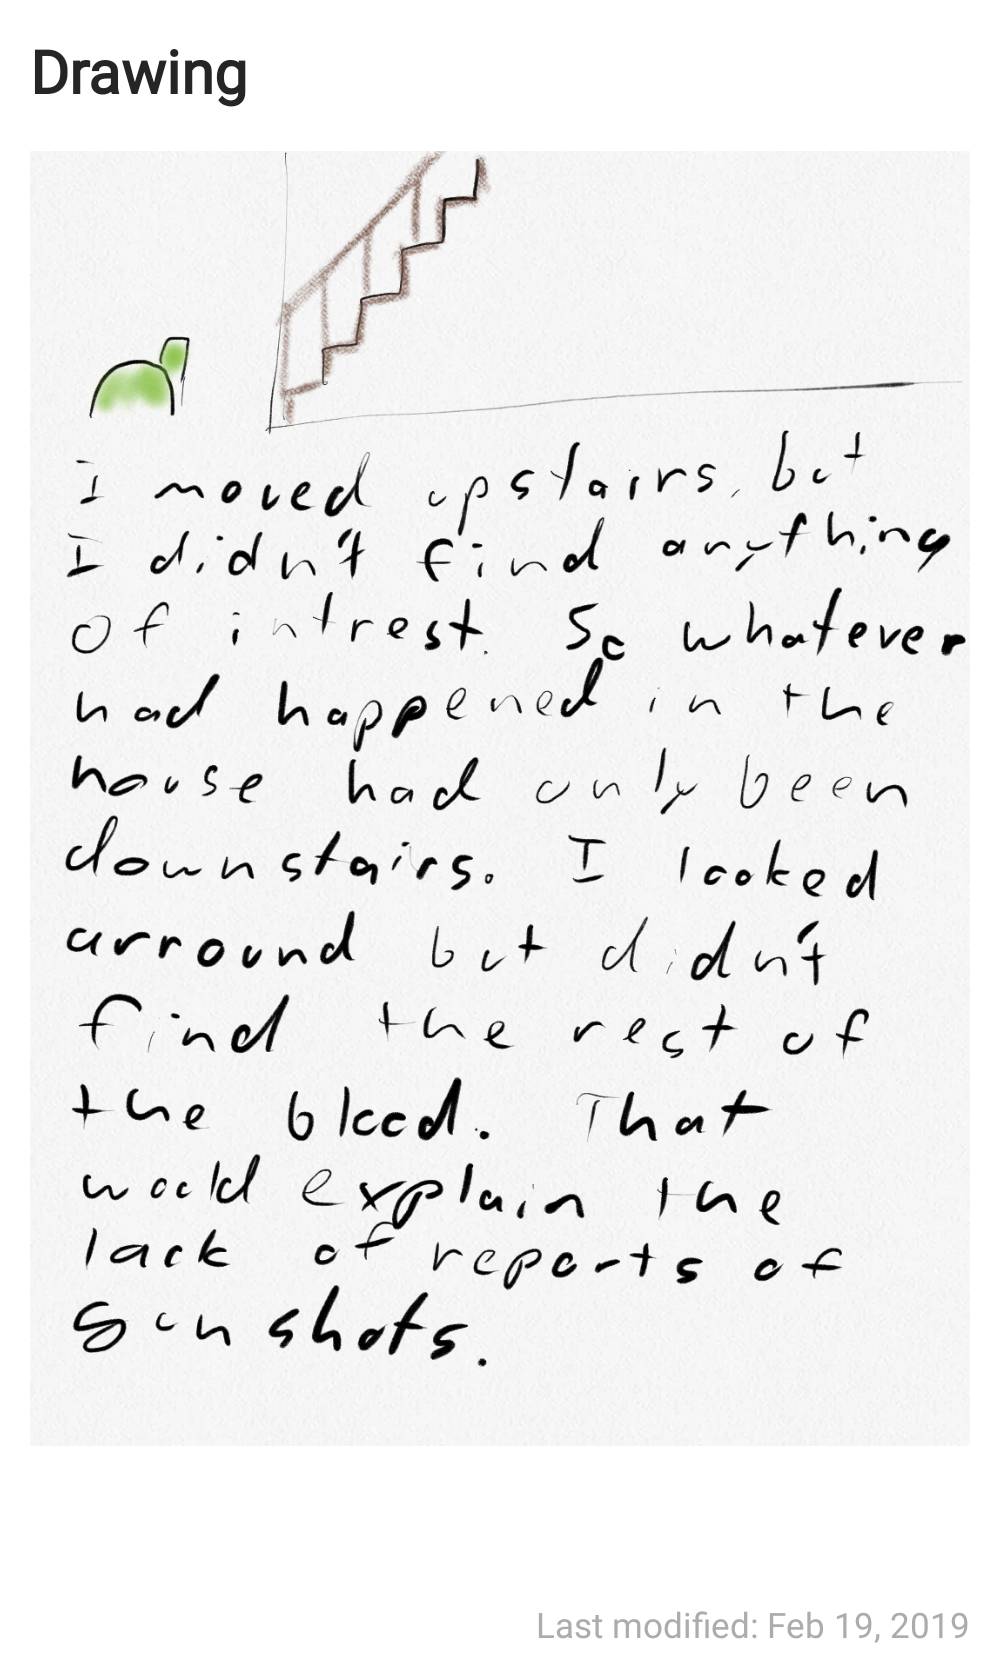 Drawing
I moved upstairs, but
I didn't find anything
of intrest. So whatever
had happened in the
house had only been
downstairs. I looked
arround but didn't
find the rest of
the blood. That
would explain the
lack of reports of
gun shots.
Last modified: Feb 19, 2019